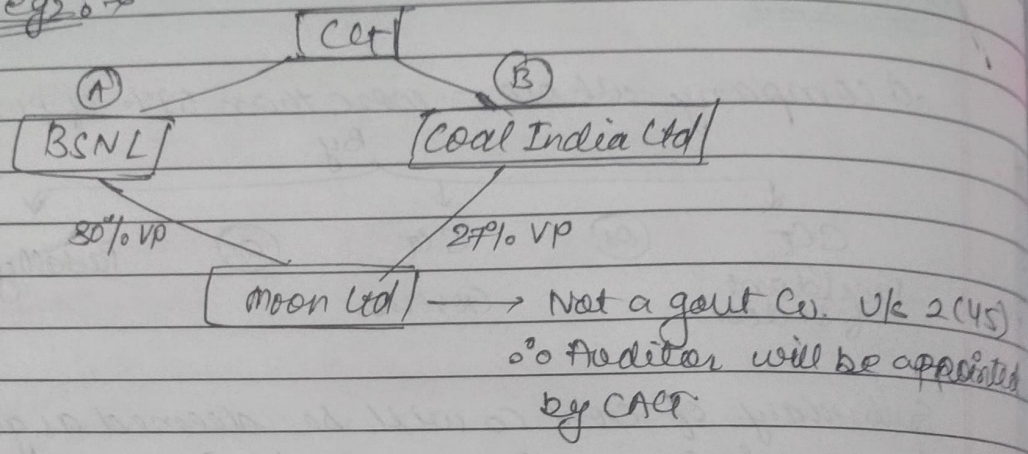 eg20 →
CG
A
B
BSNL
Coal India Ltd
30% VP
27% VP
Moon Ltd → Not a govt Co. U/s 2(45)
∴ Auditor will be appointed
by CAG